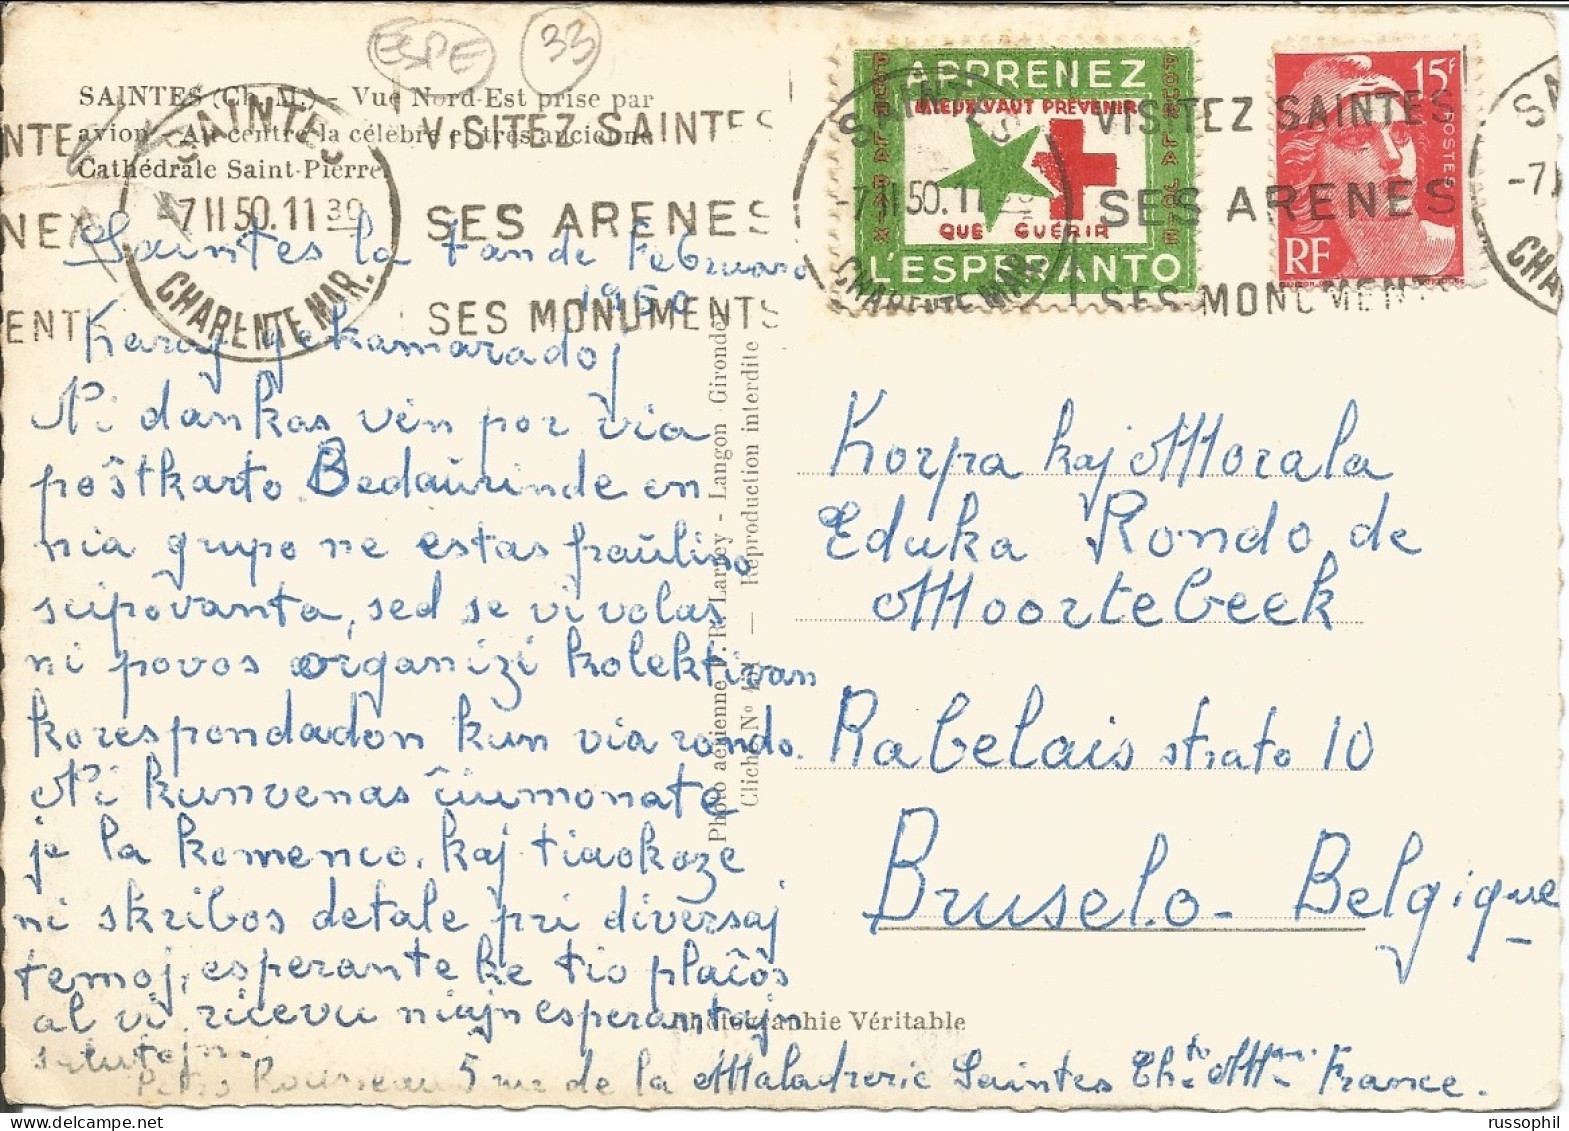 ESPE
33
SAINTES (Ch. M.) - Vue Nord-Est prise par
avion - Au centre la célèbre et très ancienne
Cathédrale Saint-Pierre
SAINTES
-7 II 50. 11 30
CHARENTE MAR.
VISITEZ SAINTES
SES ARENES
SES MONUMENTS
APPRENEZ
MIEUX VAUT PRÉVENIR
QUE GUÉRIR
L'ESPERANTO
POUR LA PAIX
POUR LA JOIE
SAINTES
-7 II 50. 11
CHARENTE MAR.
VISITEZ SAINTES
SES ARENES
SES MONUMENTS
15F
POSTES
RF
Saintes la 7an de Februaro
1950
Karaj gekamaradoj
Ni dankas vin por via
poŝtkarto. Bedaŭrinde en
nia grupo ne estas fraŭlino
scipovanta, sed se vi volas
ni povos organizi kolektivan
korespondadon kun via rondo.
Ni kunvenas ĉiumonate
je la komenco, kaj tiaokaze
ni skribos detale pri diversaj
temoj, esperante ke tio plaĉos
al vi. ricevu niajn esperantajn
salutojn.
Rousseau 5 rue de la Maladrerie Saintes Chte Mme France.
Photo aérienne F. R. Larrey - Langon (Gironde)
Cliché No — Reproduction interdite
Photographie Véritable
Korpa kaj Morala
Eduka Rondo de
Moortebeek
Rabelais strato 10
Bruselo - Belgique
www.russophil.com